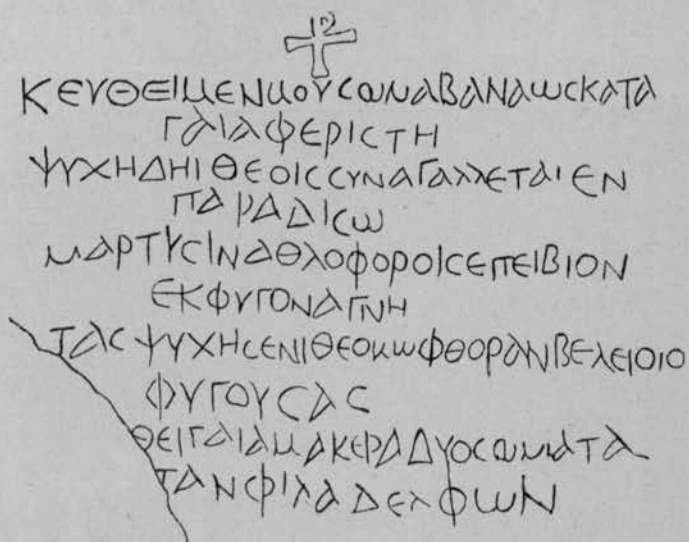 ΚΕΥΘΕΙΜΕΝΜΟΥϹΩΜΑΒΑΝΑΩϹΚΑΤΑ
ΓΑΙΑΦΕΡΙϹΤΗ
ΨΥΧΗΔΗΙΘΕΟΙϹϹΥΝΑΓΑΛΛΕΤΑΙΕΝ
ΠΑΡΑΔΙϹΩ
ΜΑΡΤΥϹΙΝΑΘΛΟΦΟΡΟΙϹΕΠΕΙΒΙΟΝ
ΕΚΦΥΓΟΝΑΓΝΗ
ΤΑϹΨΥΧΗϹΕΝΙΘΕΟΚΩΦΘΟΡΑΝΒΕΛΕΙΟΙΟ
ΦΥΓΟΥϹΑϹ
ΘΕΙΓΑΙΑΜΑΚΕΡΑΔΥΟϹΩΜΑΤΑ
ΤΑΝΦΙΛΑΔΕΛΦΩΝ